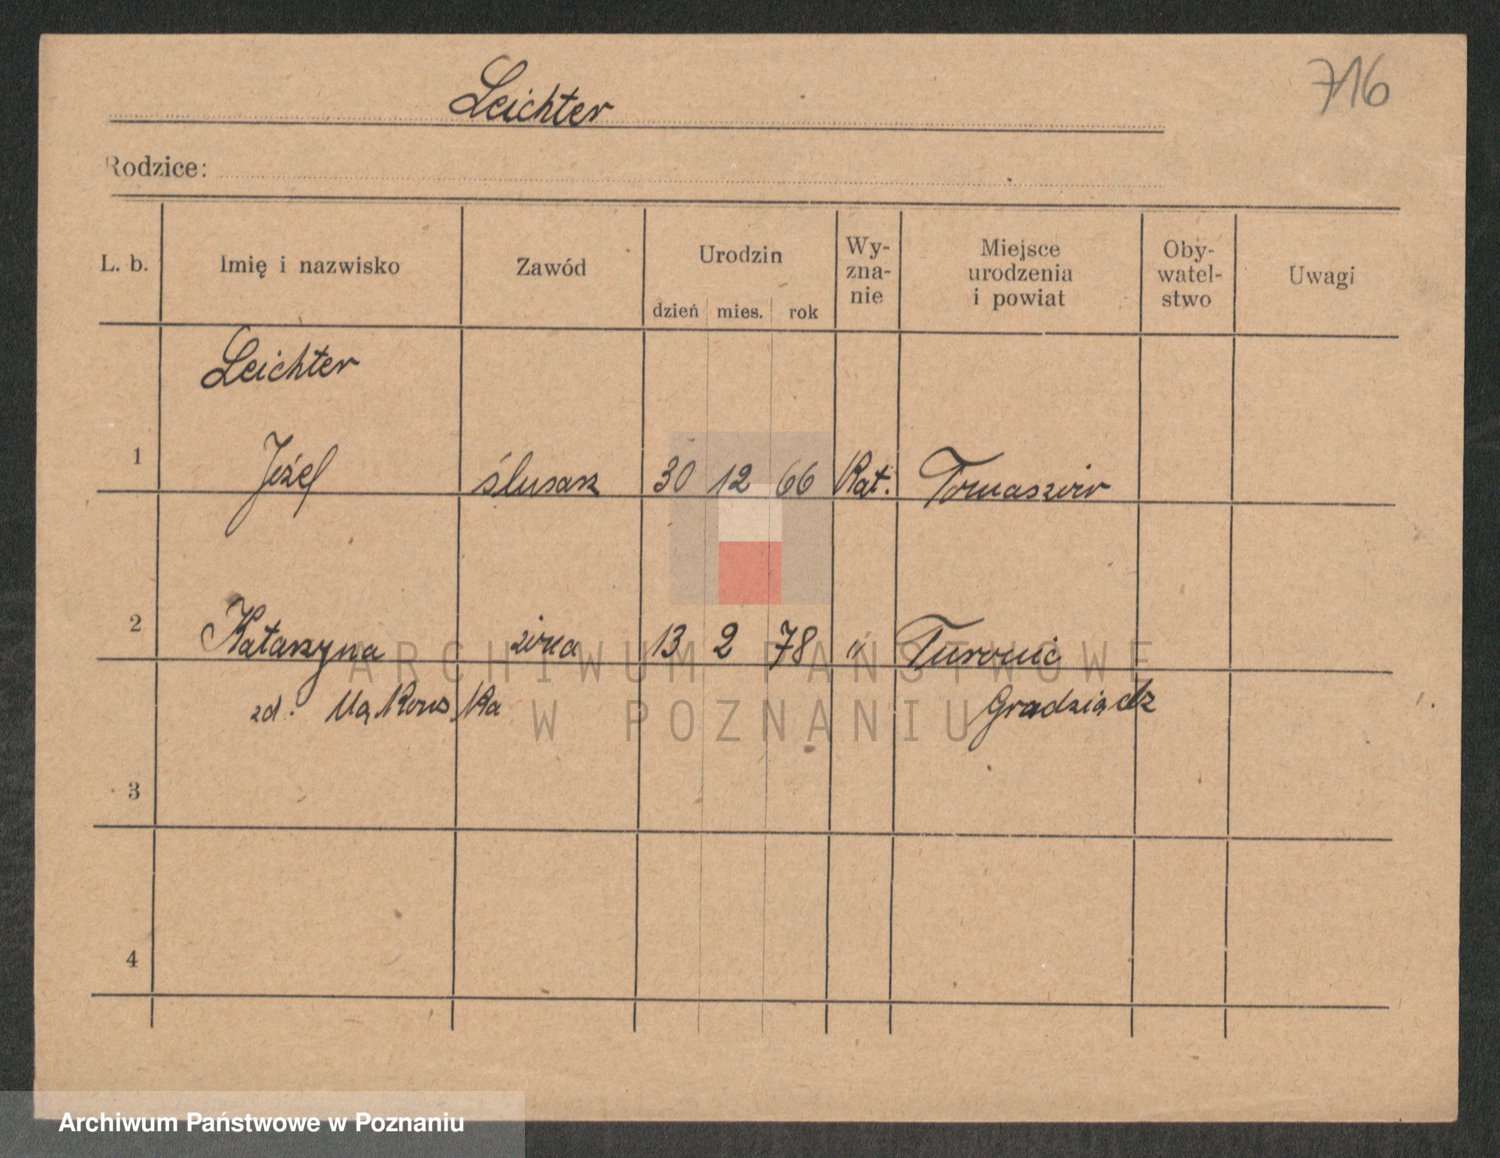 716
Leichter
Rodzice:
L. b. Imię i nazwisko Zawód Urodzin dzień mies. rok Wy-zna-nie Miejsce urodzenia i powiat Oby-watel-stwo Uwagi
Leichter
1 Józef ślusarz 30 12 66 Kat. Tomaszew
2 Katarzyna żona 13 2 78 „
zd. Mąkowska Grudziądz
3
4
ARCHIWUM PAŃSTWOWE
W POZNANIU
Archiwum Państwowe w Poznaniu